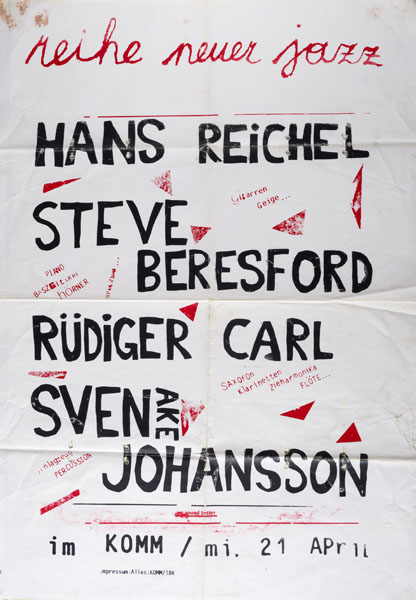 reihe neuer jazz
HANS REiCHEL
Gitarren
Geige...
STEVE
BERESFORD
PIANO
HÖRNER
RÜDiGER CARL
SAXOFON
Klarinetten Zieharmonika
FLÖTE...
SVEN AKE
JOHANSSON
..hlagzeug
PERCUSSION
im KOMM / mi. 21 APriL
mpressum:Alles:KOMM/IBK